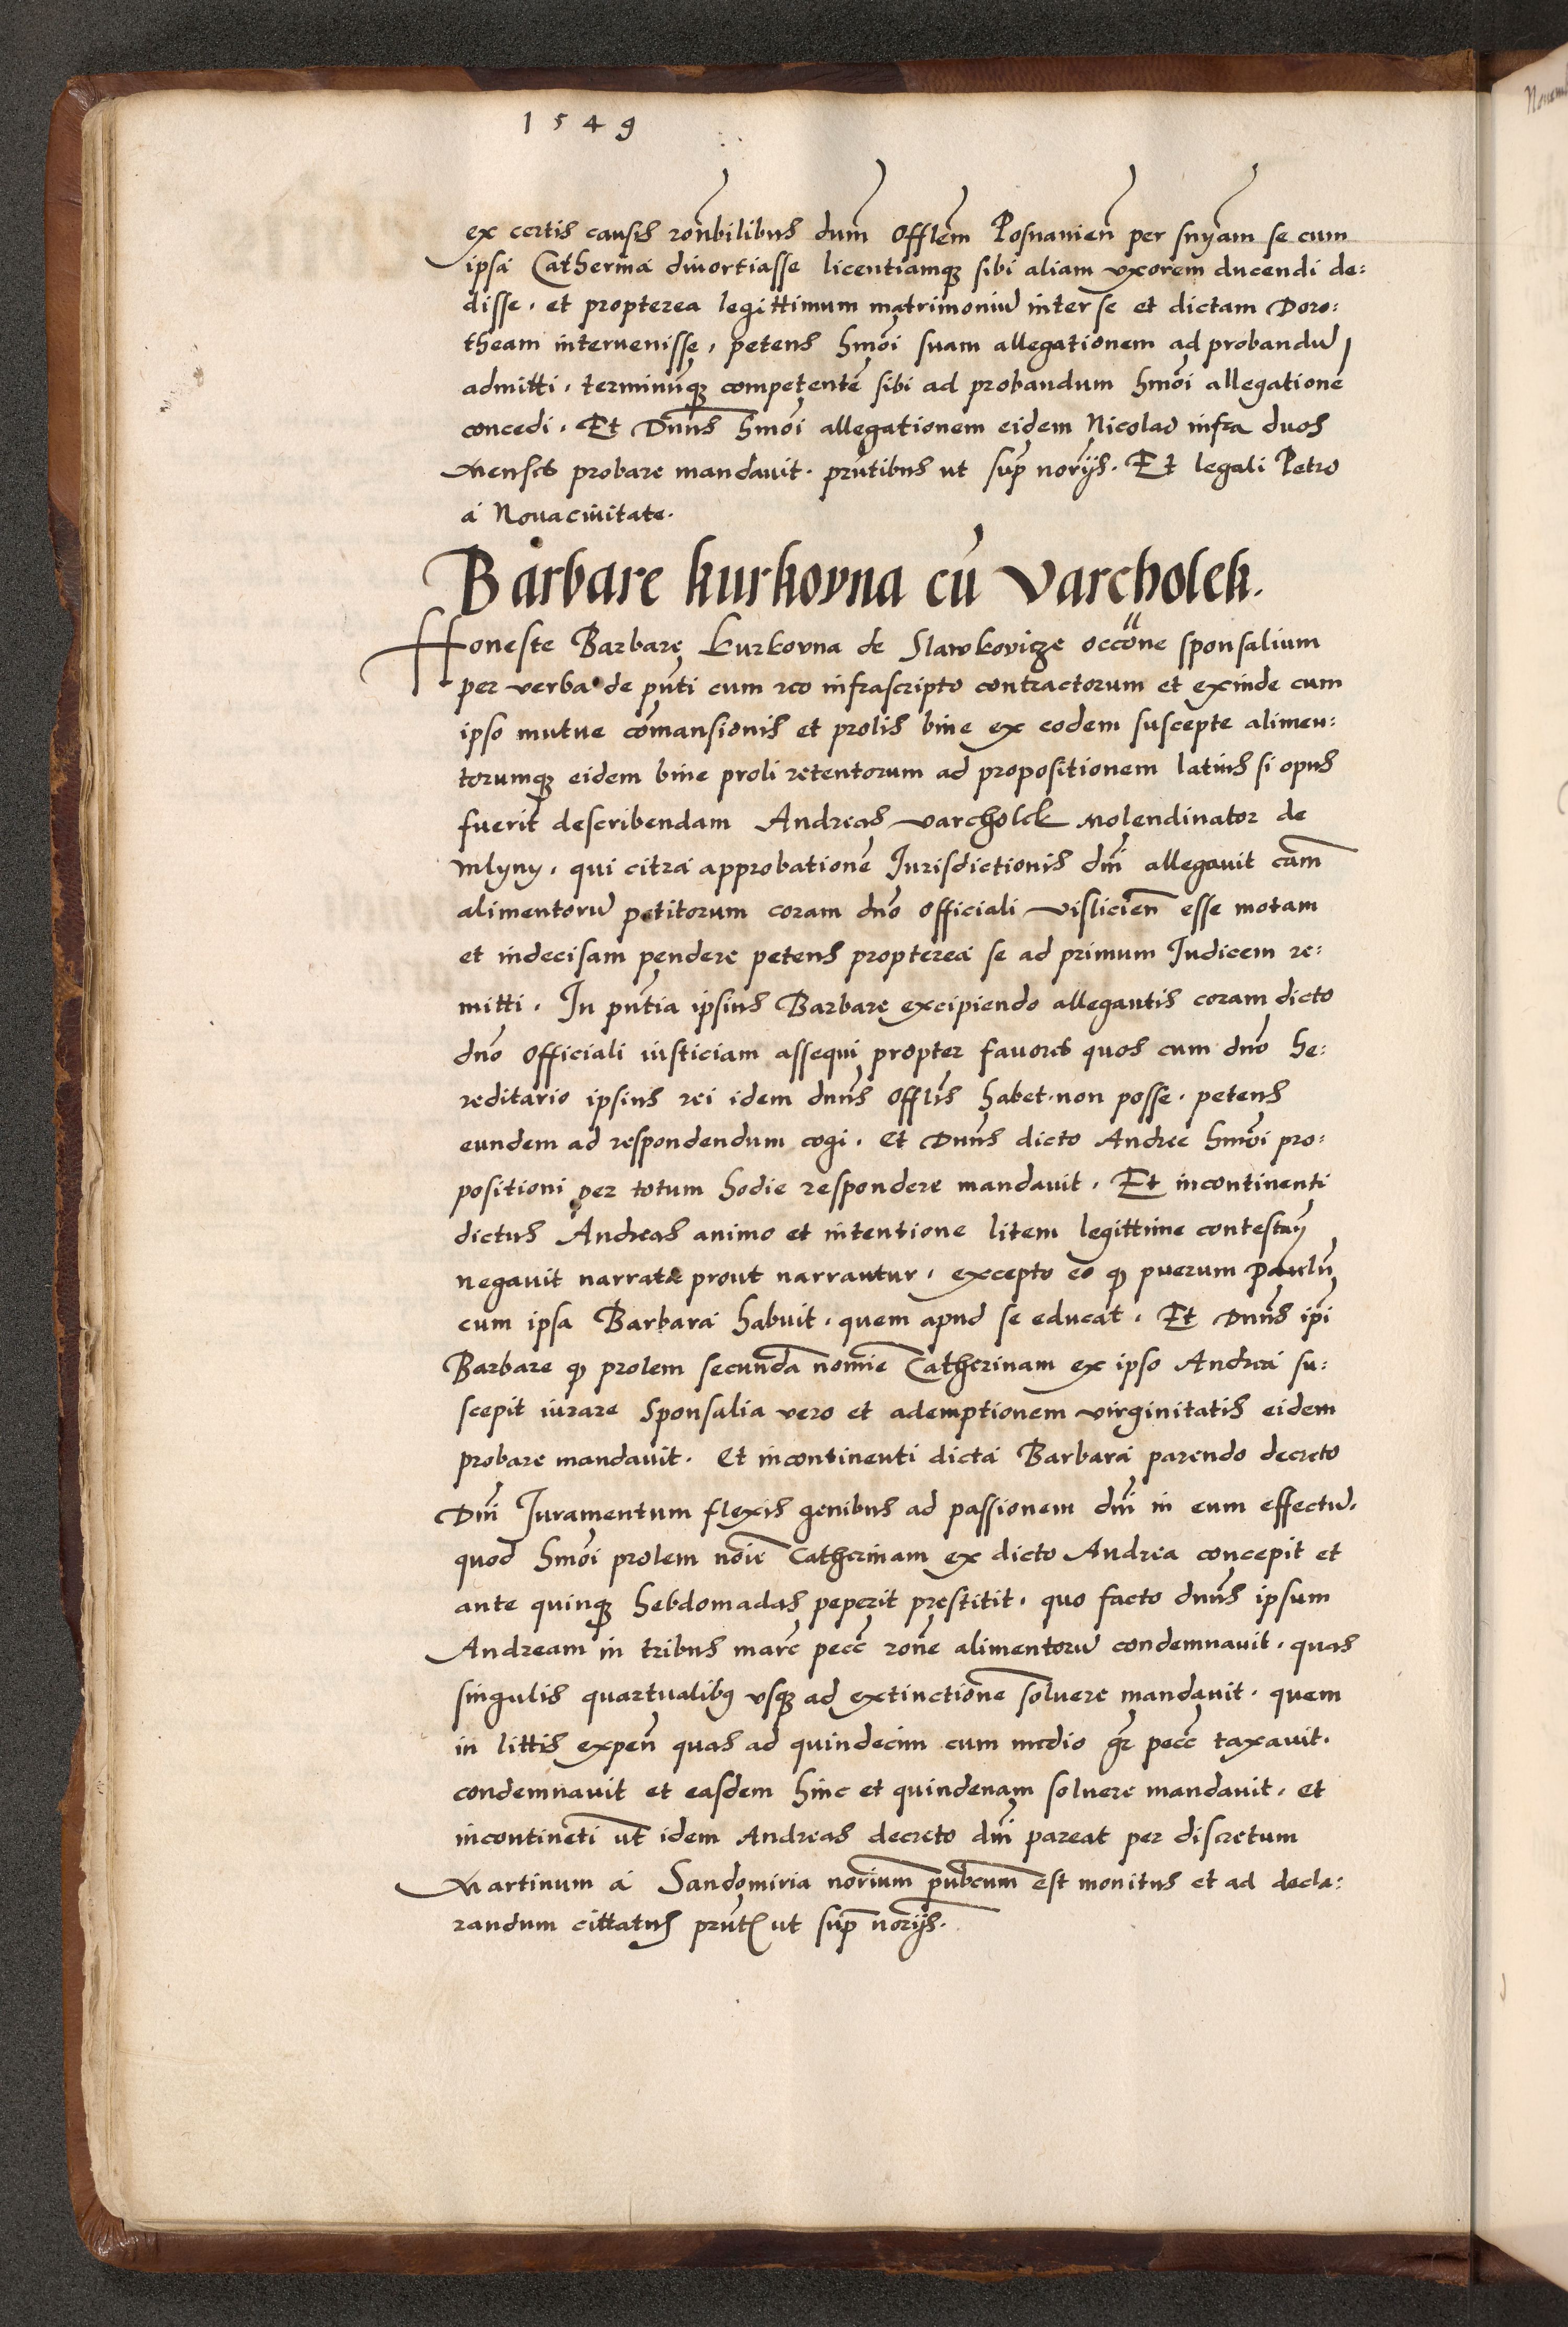 1549
ex certis causis ronbilibus dum Offlem Posnanien per snyam se cum
ipsa Catherina divortiasse licentiamq sibi aliam vxorem ducendi de:
disse. et propterea legittimum matrimoniu inter se et dictam Doro:
theam intervenisse, petens hmoi suam allegationem ad probandu
admitti. terminumq competente sibi ad probandum hmoi allegatione
concedi. Et Dnns hmoi allegationem eidem Nicolao infra duos
Menses probare mandavit. prntibus ut sup norijs. Et legali Petro
a Nouacivitate.
Barbare kurkovna cu Varcholek.
Honeste Barbare Kurkovna de Slawkovicze occone sponsalium
per verba de pnti cum reo infrascripto contractorum et exinde cum
ipso mutue comansionis et prolis bine ex eodem suscepte alimen:
torumq eidem bine proli retentorum ad propositionem latius si opus
fuerit describendam Andreas Varcholek Molendinator de
Mlyny. qui citra approbatione Jurisdictionis dni allegauit cam
alimentoru petitorum coram dno Officiali vislicien esse motam
et indecisam pendere petens propterea se ad primum Judicem re:
mitti. In pntia ipsius Barbare excipiendo allegantis coram dicto
dno Officiali iusticiam assequi propter favores quos cum dno he:
reditario ipsius rei idem dnns Offlis habet. non posse. petens
eundem ad respondendum cogi. Et Dnns dicto Andree hmoi pro:
positioni per totum hodie respondere mandavit. Et incontinenti
dictus Andreas animo et intentione litem legittime contestan
negavit narrata prout narrantur. excepto eo q puerum Paulu
cum ipsa Barbara habuit. quem apud se educat. Et Dnns ipi
Barbare q prolem secunda nomie Catherinam ex ipso Andrea su:
scepit iurare Sponsalia vero et ademptionem virginitatis eidem
probare mandavit. Et incontinenti dicta Barbara parendo decreto
Dni Juramentum flexis genibus ad passionem dni in eum effectu.
quod hmoi prolem noie Catherinam ex dicto Andrea concepit et
ante quinq hebdomadas peperit prestitit. quo facto dnns ipsum
Andream in tribus marc pecc rone alimentoru condemnavit. quas
singulis quartualibus vsq ad extinctione solvere mandavit. quem
in littis expen quas ad quindecim cum medio gr pecc taxavit.
condemnavit et easdem hinc et quindenam solvere mandavit. et
incontineti ut idem Andreas decreto dni pareat per discretum
Martinum a Sandomiria norium pubcum est monitus et ad decla:
randum cittatus prnt ut sup norijs.